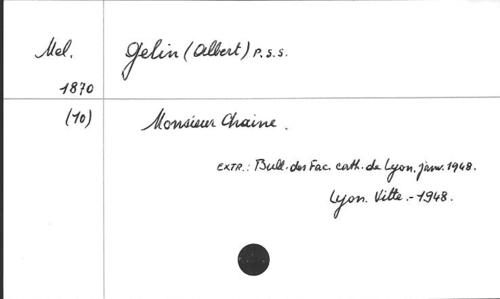 Mel. Gelin (Albert) P.S.S.
1870
(10) Monsieur Chaine.
EXTR.: Bull. des Fac. cath. de Lyon. janv. 1948.
Lyon. Vitte. - 1948.